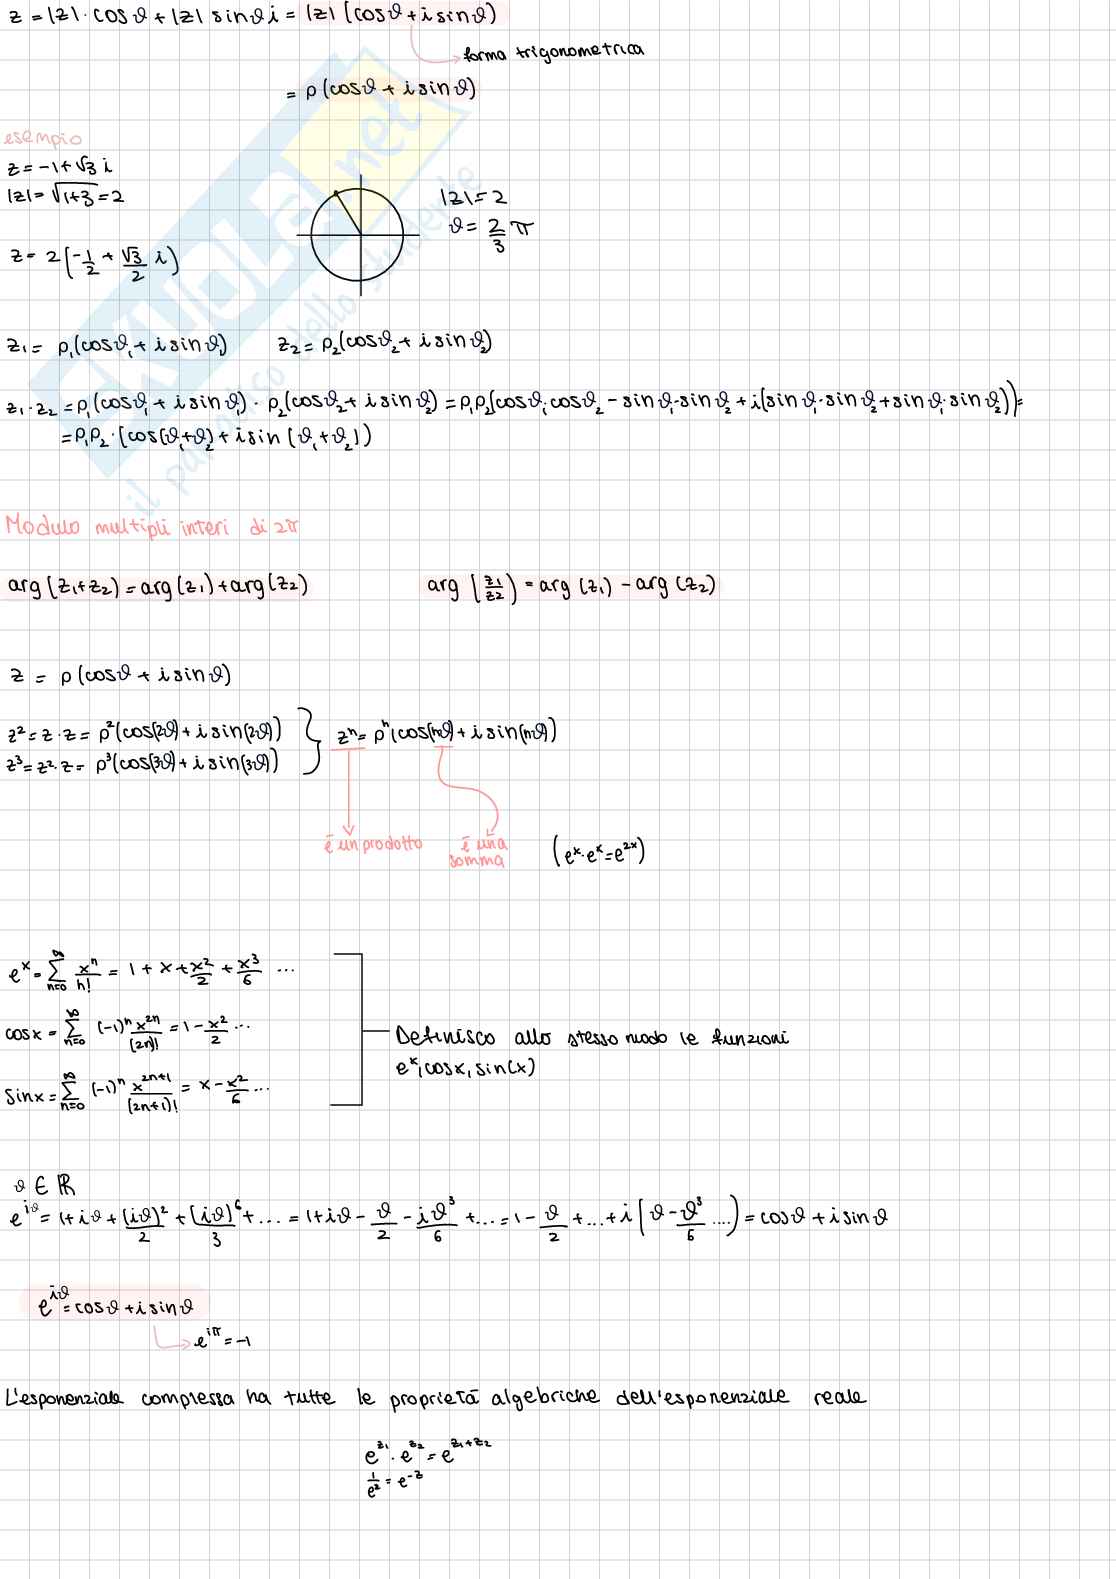 z = |z| · cosϑ + |z| sinϑ i = |z| (cosϑ + i sinϑ)
forma trigonometrica
= ρ (cosϑ + i sinϑ)
esempio
z = -1 + √3 i
|z| = √1+3 = 2
|z| = 2
ϑ = 2/3 π
z = 2 (-1/2 + √3/2 i)
z₁ = ρ₁(cosϑ₁ + i sinϑ₁) z₂ = ρ₂(cosϑ₂ + i sinϑ₂)
z₁ · z₂ = ρ₁(cosϑ₁ + i sinϑ₁) · ρ₂(cosϑ₂ + i sinϑ₂) = ρ₁ρ₂(cosϑ₁ cosϑ₂ - sinϑ₁ · sinϑ₂ + i(sinϑ₁ · sinϑ₂ + sinϑ₁ · sinϑ₂)) =
= ρ₁ρ₂ · (cos(ϑ₁+ϑ₂) + i sin(ϑ₁+ϑ₂))
Modulo multipli interi di 2π
arg(z₁+z₂) = arg(z₁) + arg(z₂) arg(z₁/z₂) = arg(z₁) - arg(z₂)
z = ρ (cosϑ + i sinϑ)
z² = z · z = ρ²(cos(2ϑ) + i sin(2ϑ))
z³ = z² · z = ρ³(cos(3ϑ) + i sin(3ϑ))
zⁿ = ρⁿ(cos(nϑ) + i sin(nϑ))
è un prodotto
è una
somma
(eˣ · eˣ = e²ˣ)
eˣ = ∑ n=0 ∞ xⁿ/n! = 1 + x + x²/2 + x³/6 ...
cosx = ∑ n=0 ∞ (-1)ⁿ x²ⁿ/(2n)! = 1 - x²/2 ...
sinx = ∑ n=0 ∞ (-1)ⁿ x²ⁿ⁺¹/(2n+1)! = x - x²/6 ...
Definisco allo stesso modo le funzioni
eˣ, cosx, sin(x)
ϑ ∈ ℝ
e^iϑ = 1 + iϑ + (iϑ)²/2 + (iϑ)⁶/3 + .... = 1 + iϑ - ϑ/2 - iϑ³/6 + ... = 1 - ϑ/2 + ... + i (ϑ - ϑ³/6 ....) = cosϑ + i sinϑ
e^iϑ = cosϑ + i sinϑ
e^iπ = -1
L'esponenziale complessa ha tutte le proprietà algebriche dell'esponenziale reale
e^z₁ · e^z₂ = e^z₁+z₂
1/e^z = e^-z
SKUOLA.net
il paradiso dello studente